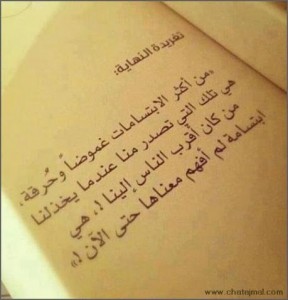 تغريدة النهاية:
«من أكثر الابتسامات غموضاً وحُرقة،
هي تلك التي تصدر منا عندما يخذلنا
من كان أقرب الناس إلينا !، هي
ابتسامة لم أفهم معناها حتى الآن !»
www.chatejmal.com